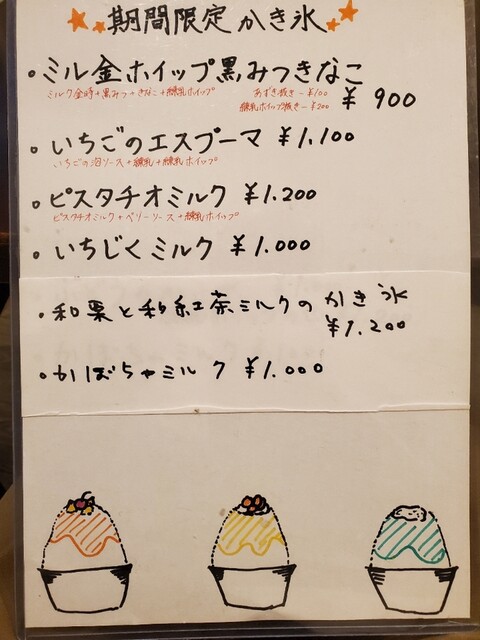 期間限定かき氷
・ミル金ホイップ黒みつきなこ
ミルク金時+黒みつ+きなこ+練乳ホイップ
あずき抜き−¥100
練乳ホイップ抜き−¥200
¥900
・いちごのエスプーマ ¥1,100
いちごの泡ソース+練乳+練乳ホイップ
・ピスタチオミルク ¥1.200
ピスタチオミルク+ベリーソース+練乳ホイップ
・いちじくミルク ¥1.000
・和栗と和紅茶ミルクのかき氷
¥1.200
・かぼちゃミルク ¥1.000